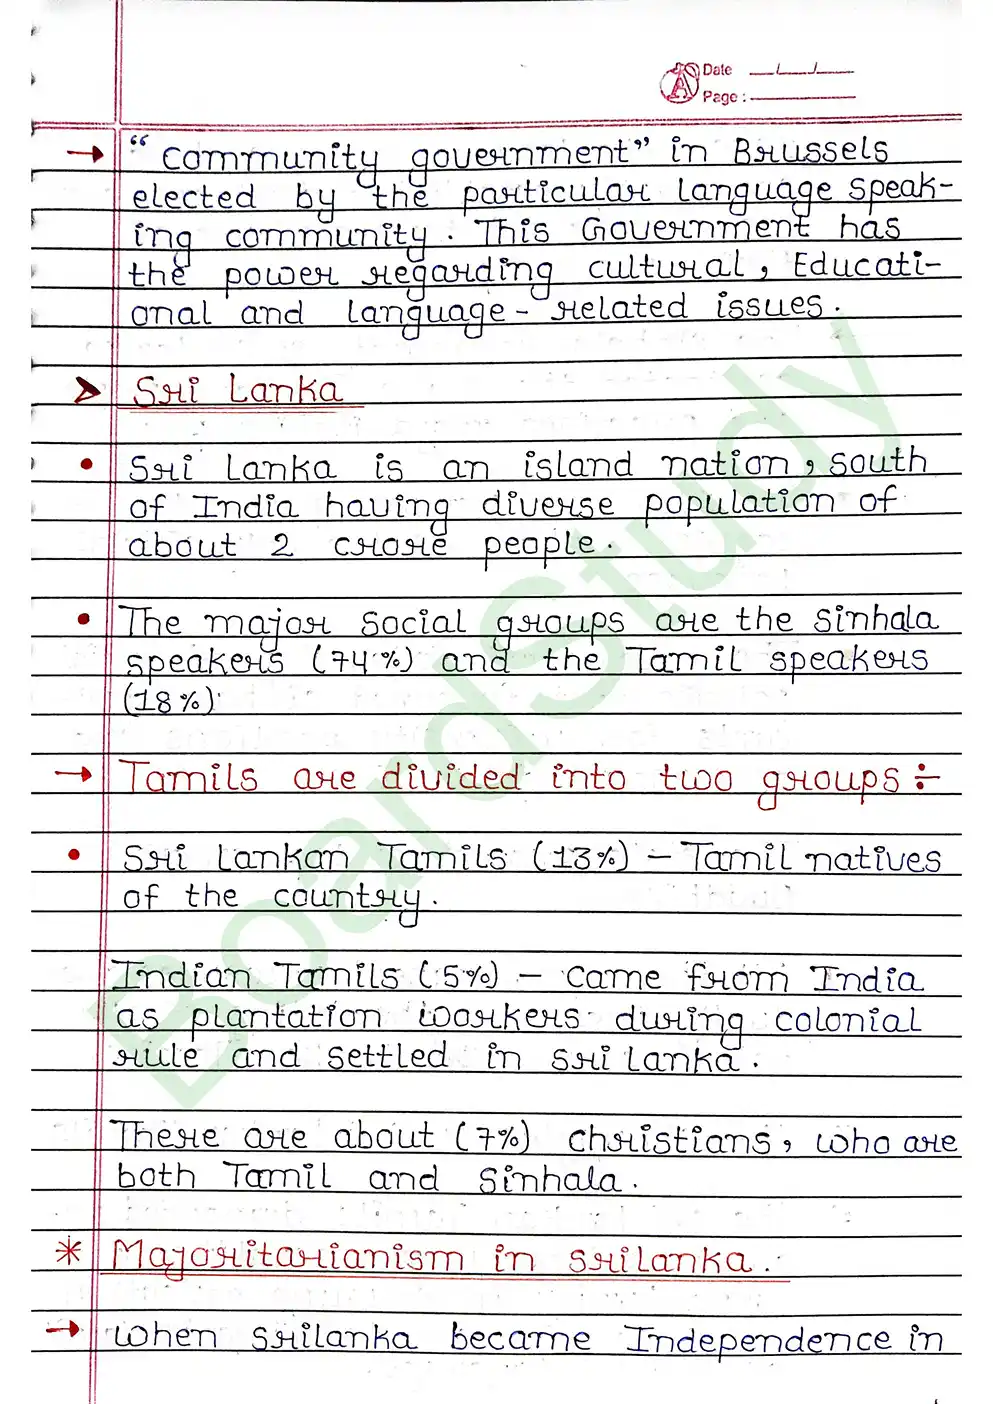 Date __/__/__
Page : ________
→ "Community government" in Brussels
elected by the particular language speak-
ing community. This Government has
the power regarding cultural, Educati-
onal and language - related issues.
➤ Sri Lanka
• Sri Lanka is an island nation, south
of India having diverse population of
about 2 crore people.
• The major social groups are the Sinhala
speakers (74%) and the Tamil speakers
(18%)
→ Tamils are divided into two groups ÷
• Sri Lankan Tamils (13%) – Tamil natives
of the country.
Indian Tamils (5%) – came from India
as plantation workers during colonial
rule and settled in Sri Lanka.
There are about (7%) christians, who are
both Tamil and Sinhala.
* Majoritarianism in Srilanka.
→ When Srilanka became Independence in
BoardStudy